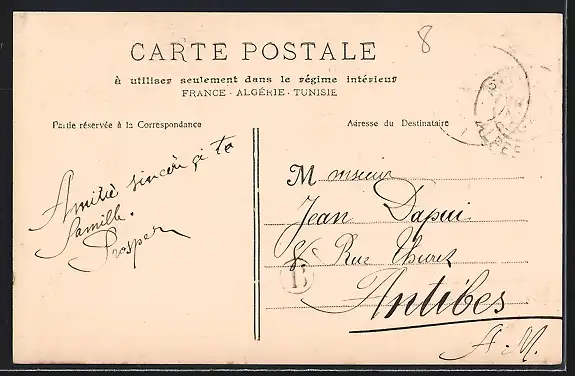 8
CARTE POSTALE
à utiliser seulement dans le régime intérieur
FRANCE - ALGÉRIE - TUNISIE
Partie réservée à la Correspondance
Adresse du Destinataire
Amitié sincère à ta
famille.
Prosper
Monsieur
Jean Dapui
Rue Thuret
B
Antibes
A-M.